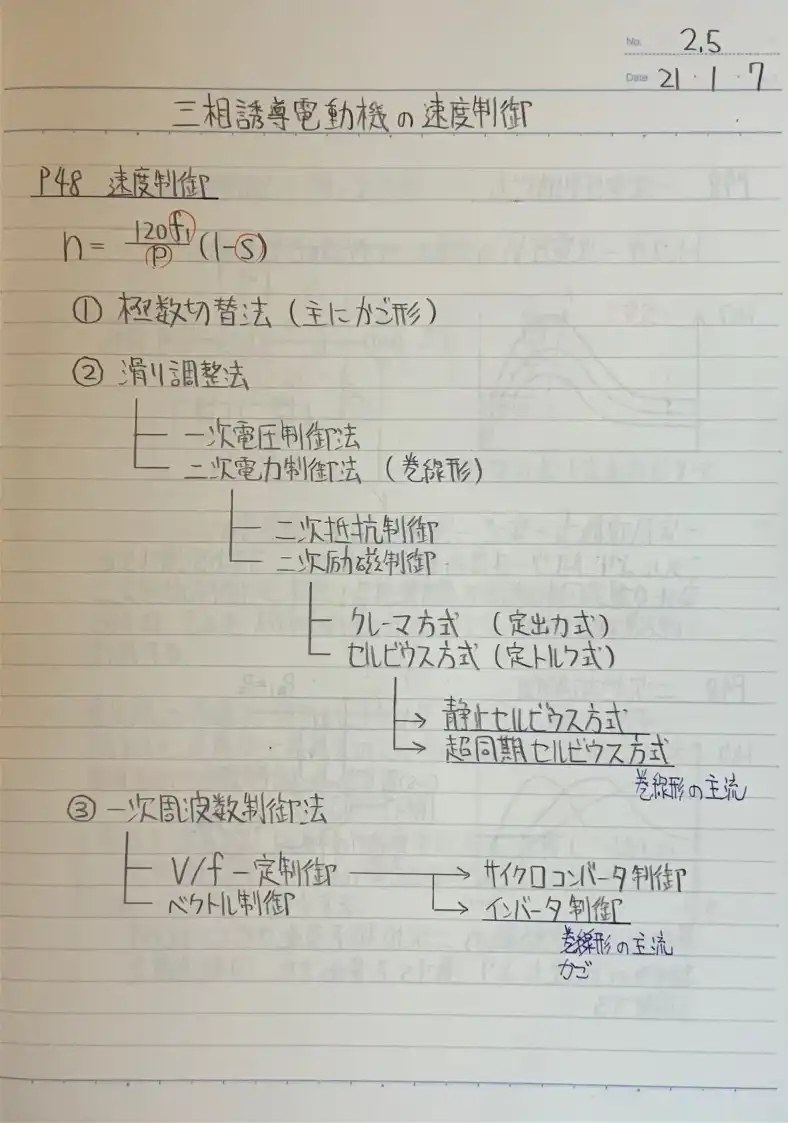 No. 2.5
Date 21・1・7
三相誘導電動機の速度制御
P48 速度制御
n = 120f₁/p (1-s)
① 極数切替法 (主にかご形)
② 滑り調整法
一次電圧制御法
二次電力制御法 (巻線形)
二次抵抗制御
二次励磁制御
クレーマ方式 (定出力式)
セルビウス方式 (定トルク式)
静止セルビウス方式
超同期セルビウス方式
巻線形の主流
③ 一次周波数制御法
V/f 一定制御 → サイクロコンバータ制御
ベクトル制御 → インバータ制御
巻線形の主流
かご